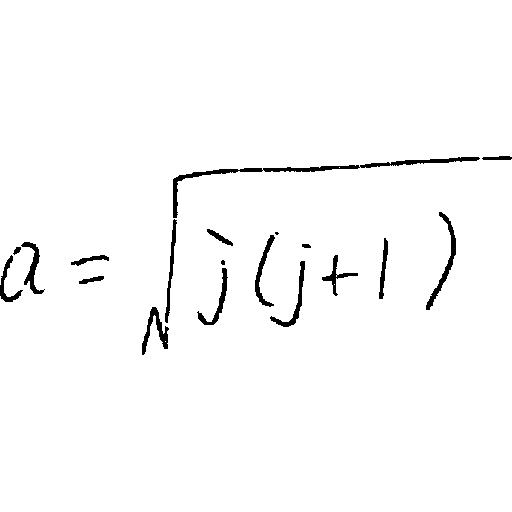 a = √(j(j+1))